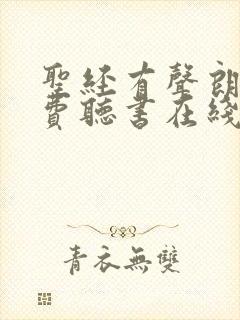 聖经有聲朗
費聽書在綫
青衣無雙